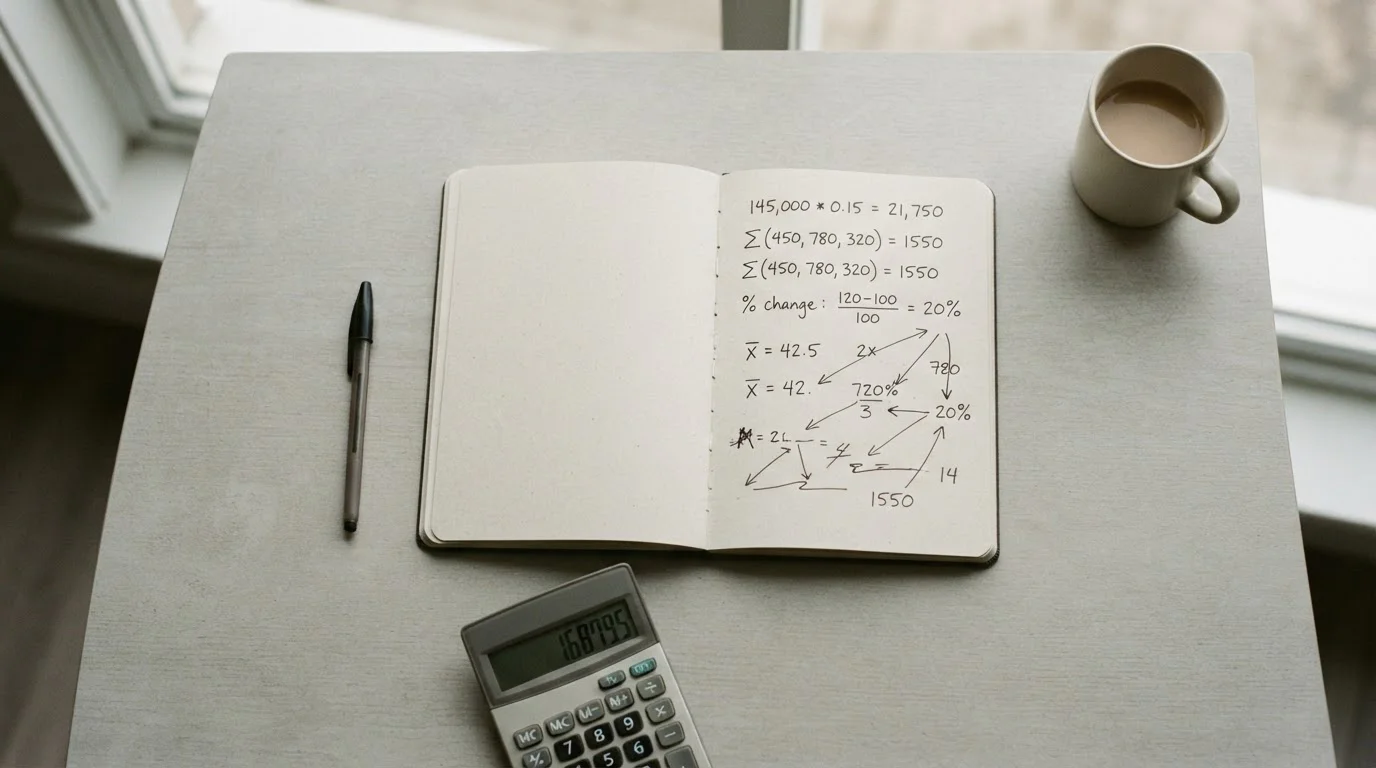 145,000 * 0.15 = 21,750
∑(450, 780, 320) = 1550
∑(450, 780, 320) = 1550
% change: 120-100/100 = 20%
x̅ = 42.5
2x
780
x̅ = 42.
720%/3
20%
= 2
14
1550
MC
MC
M-
M+
÷
7
8
9
×
5
6
−